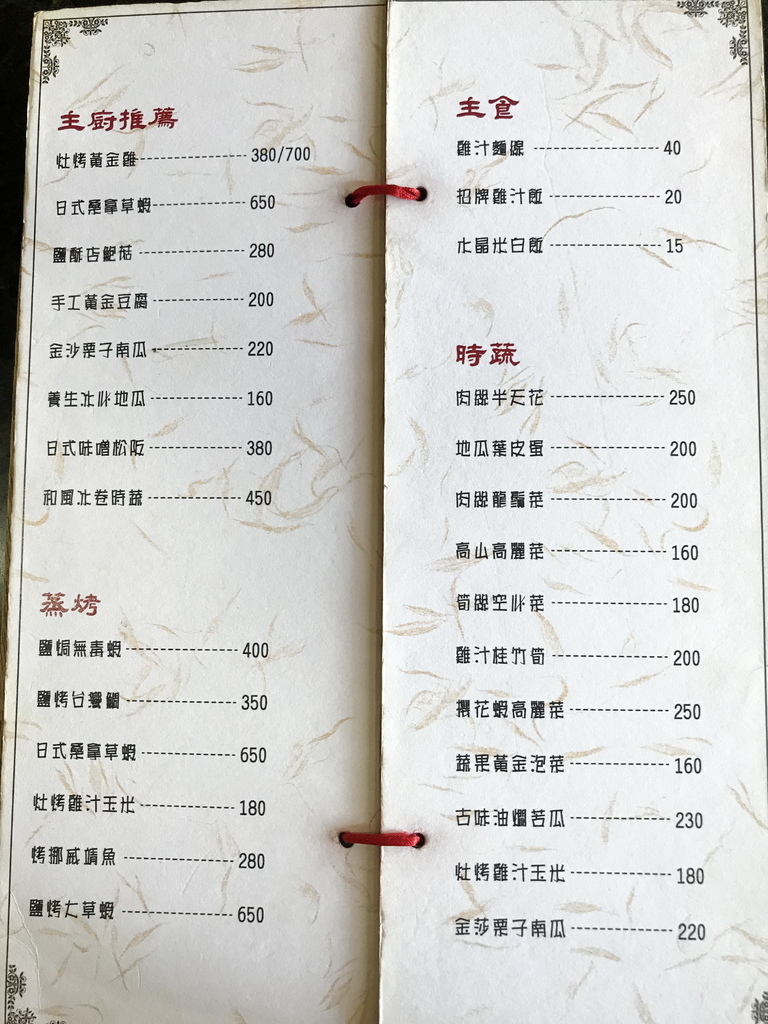 主廚推薦
灶烤黃金雞 380/700
日式桑拿草蝦 650
鹽酥杏鮑菇 280
手工黃金豆腐 200
金沙栗子南瓜 220
養生冰心地瓜 160
日式味噌松阪 380
和風冰卷時蔬 450
蒸烤
鹽焗無毒蝦 400
鹽烤台灣鯛 350
日式桑拿草蝦 650
灶烤雞汁玉米 180
烤挪威鯖魚 280
鹽烤大草蝦 650
主食
雞汁麵線 40
招牌雞汁飯 20
水晶米白飯 15
時蔬
肉絲半天花 250
地瓜葉皮蛋 200
肉絲龍鬚菜 200
高山高麗菜 160
筍絲空心菜 180
雞汁桂竹筍 200
櫻花蝦高麗菜 250
蔬果黃金泡菜 160
古味油燜苦瓜 230
灶烤雞汁玉米 180
金莎栗子南瓜 220